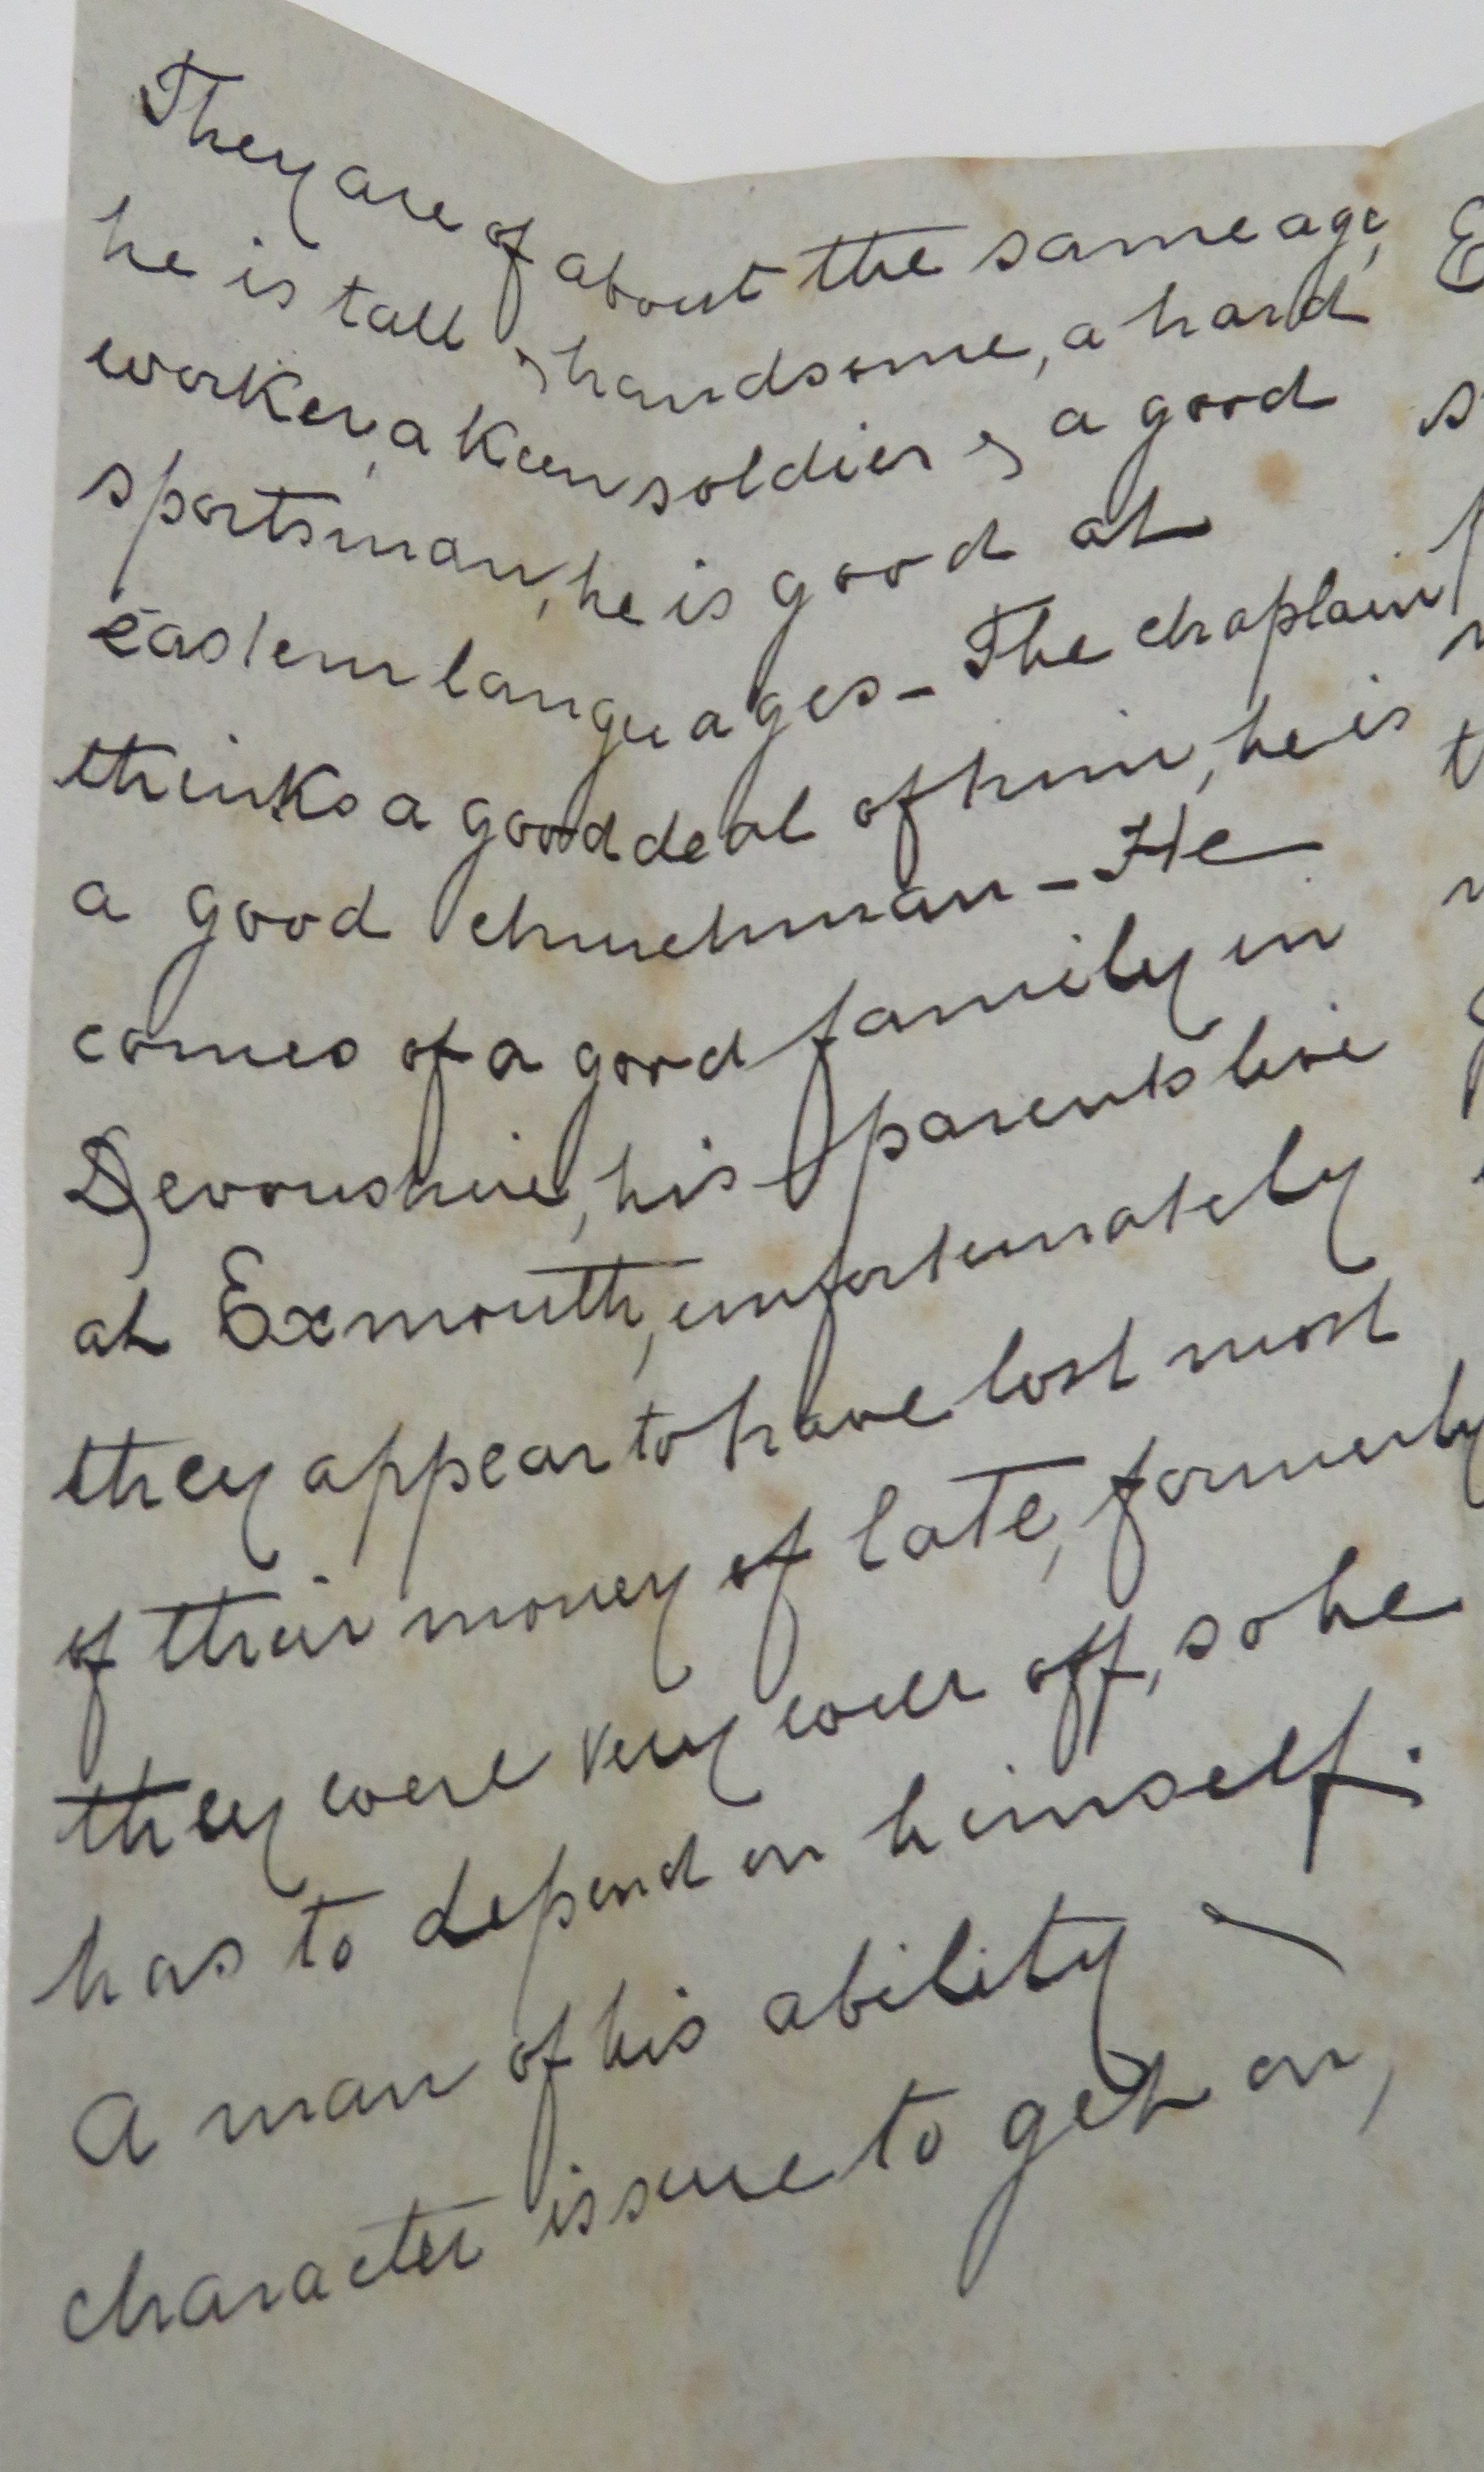 They are of about the same age,
he is tall & handsome, a hard
worker, a keen soldier & a good
sportsman, he is good at
eastern languages - The chaplain
thinks a good deal of him, he is
a good churchman - He
comes of a good family in
Devonshire, his parents live
at Exmouth, unfortunately
they appear to have lost most
of their money of late, formerly
they were very well off, so he
has to depend on himself.
A man of his ability &
character is sure to get on,